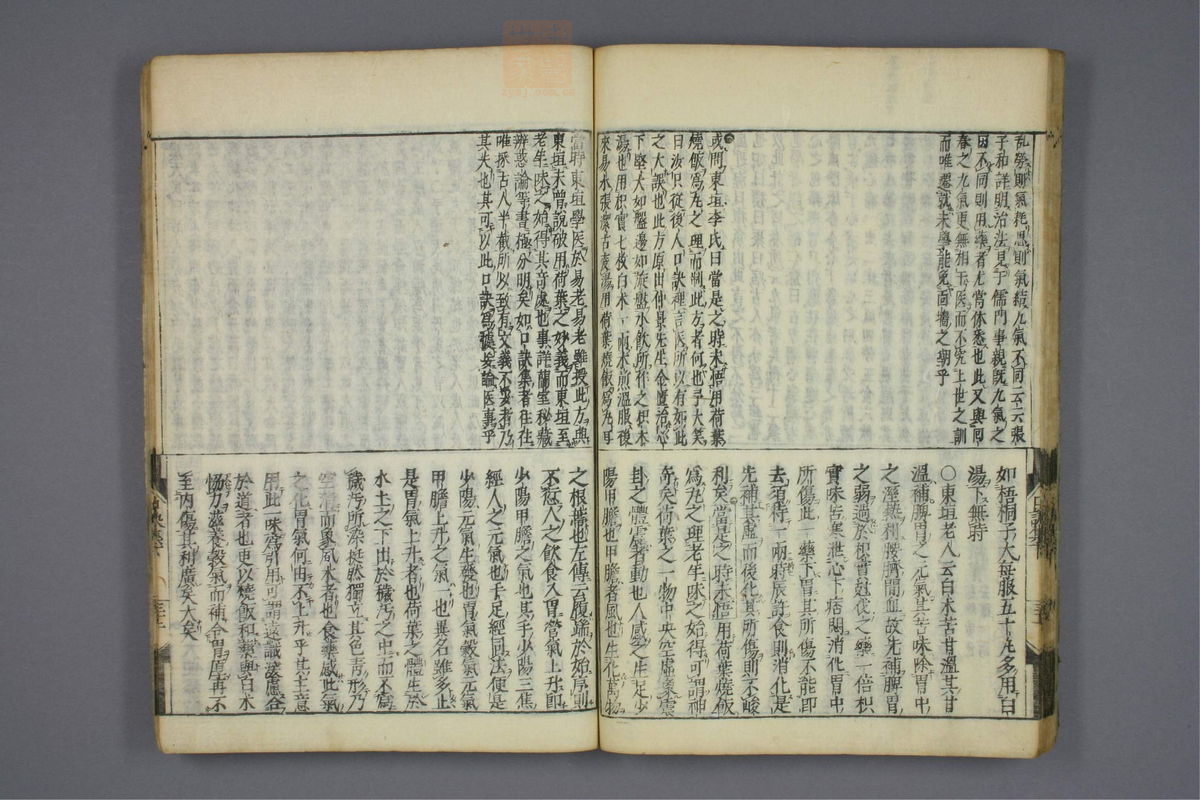 乱勞則氣耗思則氣結九氣不同云云張
子和詳明治法見于儒門事親既九氣之
因不同則用藥者尤當休悉也此又與同
春之九氣更無相干医而不究上世之訓
而唯蹇就末學能免面墻之朝乎
或問東垣李氏曰當是之時未悟用荷葉
燒飯為丸之理而制此方者何也予大笑
曰汝只從後人口訣裡言医所以有如此
之大誤也此方原出仲景先生金匱治心
下堅大如盤邊如旋盤水飲所作之枳朮
湯也用枳實七枚白朮二兩水煎溫服後
來易水張潔古變湯用荷葉燒飯為丸耳
如梧桐子大每服五十丸多用白
湯下無時
〇東垣老人云白朮苦甘溫其甘
溫補脾胃之元氣其苦味除胃中
之溼熱利腰臍間血故先補脾胃
之弱過於枳實尅伐之藥一倍枳
實味苦寒泄心下痞悶消化胃中
所傷此一藥下胃其所傷不能即
去須待一兩時辰許食則消化是
先補其虛而後化其所傷則不峻
利矣當是之時未悟用荷葉燒飯
為丸之理老年味之始得可謂神
奇矣荷葉之一物中央空虛象震
卦之體震者動也人感之生足少
陽甲膽也甲膽者風也生化萬物
當聯東垣學医於易老易老雖授此方與
東垣未曾說破用荷葉之妙義而東垣至
老年味之始得其奇處也事詳蘭室秘藏
辨惑論等書極分明矣如口訣集者往往
唯採古人半截所以致有文義不妥者乃
其夫也其可以此口訣為據妄論医事乎
之根蒂也左傳云履端於始序則
不愆人之飲食入胃營氣上升即
少陽甲膽之氣也其手少陽三焦
經人之元氣也手足經同法便是
少陽元氣生發也胃氣穀氣元氣
甲膽上升之氣一也異名雖多止
是胃氣上升者也荷葉之體生於
水土之下出於穢污之中而不為
穢污所染挺然獨立其色青形乃
空清而象風木者也食藥感此氣
之化胃氣何由不上升乎其主意
用此一味為引用可謂遠識深慮合
於道者也更以燒飯和藥與白朮
協力滋養穀氣而補令胃厚再不
至內傷其利廣矣大矣